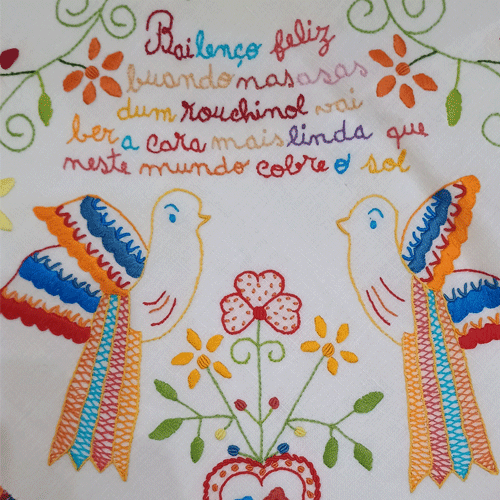 Bailenço feliz
buando nas asas
dum rouchinol vai
ber a cara mais linda que
neste mundo cobre o sol